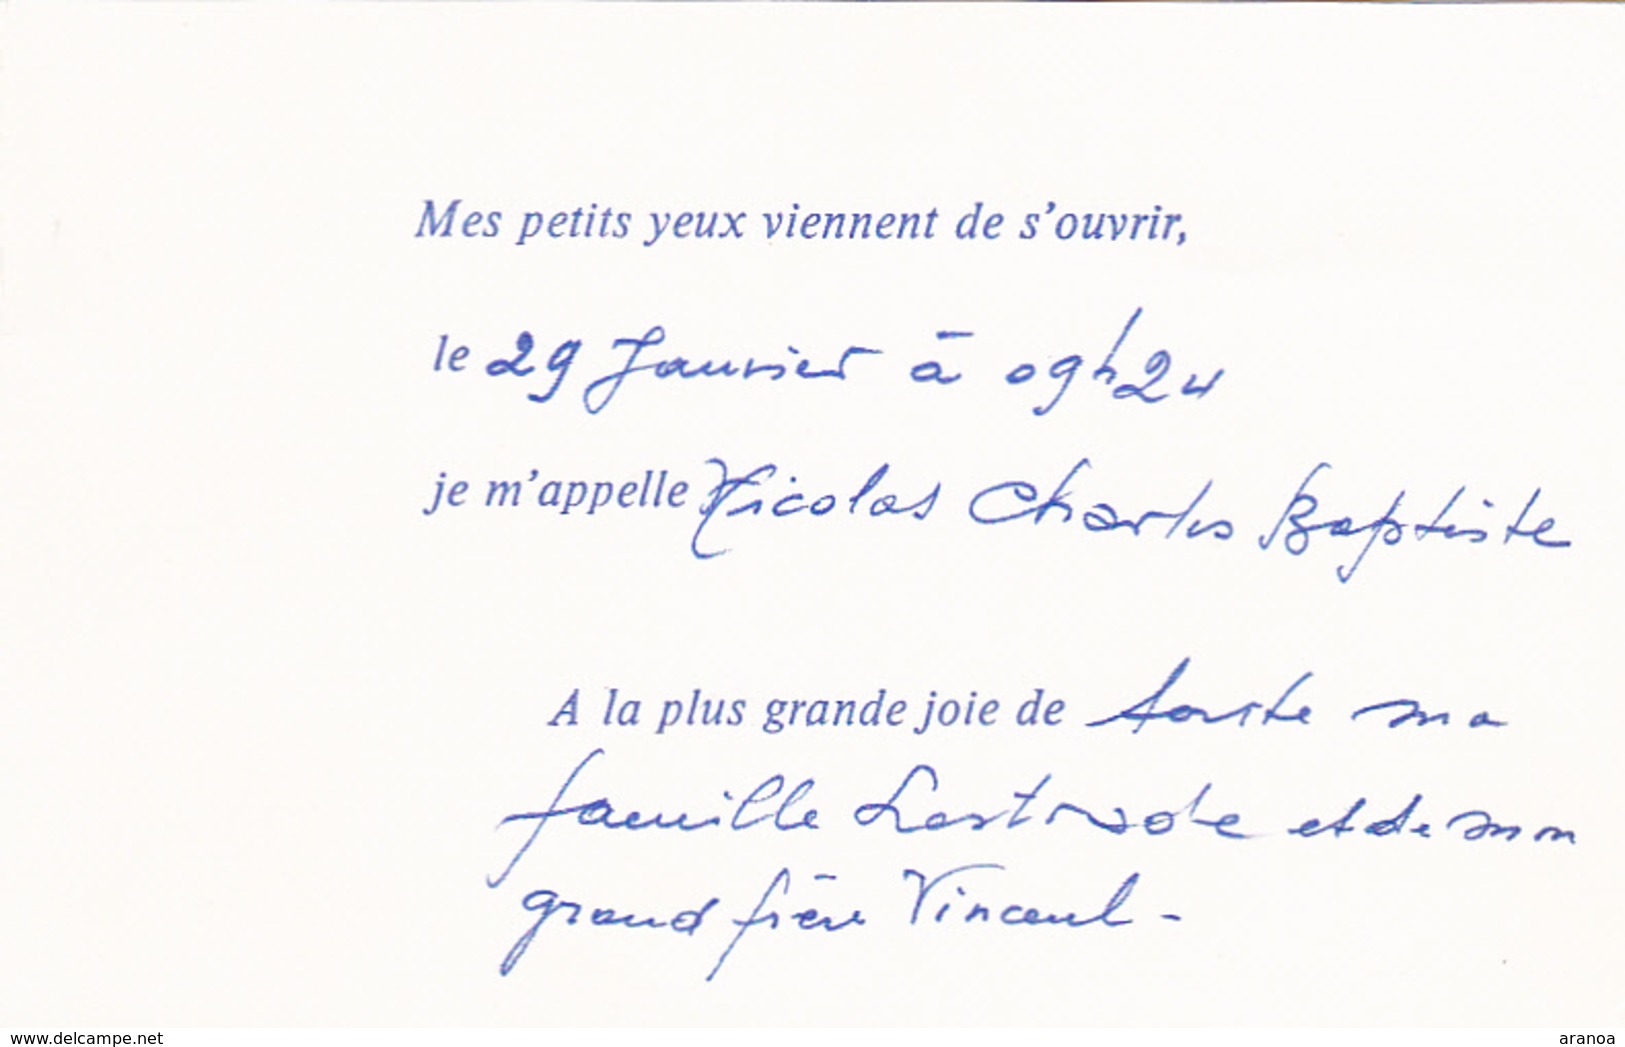 Mes petits yeux viennent de s'ouvrir,
le 29 Janvier à 09h24
je m'appelle Nicolas Charles Baptiste
A la plus grande joie de toute ma
famille Lestrade et de mon
grand frère Vincent -
www.delcampe.net
aranoa